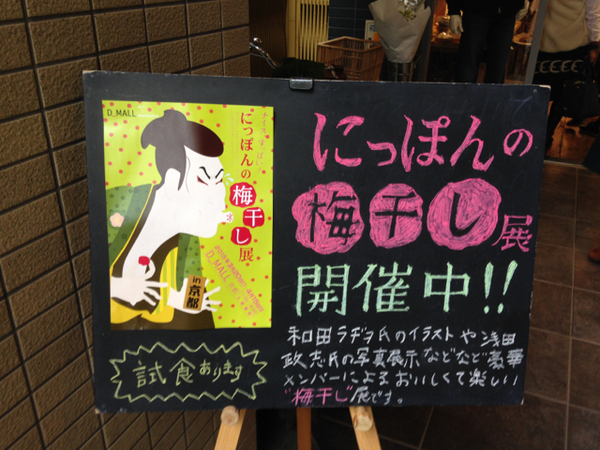 D_MALL
にっぽんの
梅干し展
in 京都
D_MALL
にっぽんの
梅干し展
開催中!!
和田ラヂヲ氏のイラストや浅田
政志氏の写真展示などなど豪華
メンバーによるおいしくて楽しい
"梅干し"展です。
試食あります